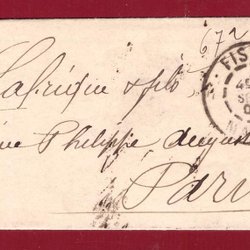 672
Lafrique & fils
ue Philippe Augus
Paris
FIS
M